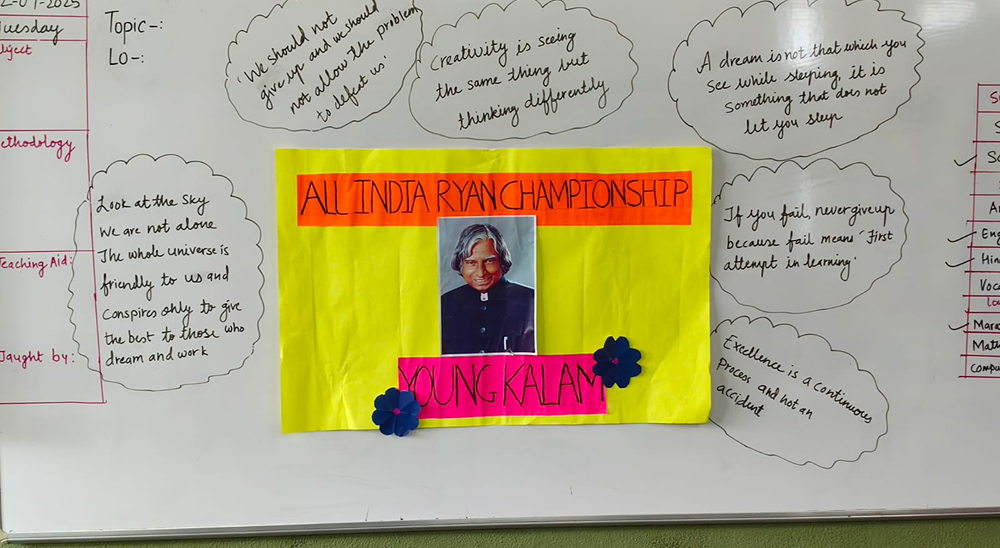 -07-2025
Tuesday
Topic-:
Lo-:
'We should not
give up and we should
not allow the problem
to defeat us'
Creativity is seeing
the same thing but
thinking differently
A dream is not that which you
see while sleeping, it is
something that does not
let you sleep
ethodology
Look at the sky
We are not alone
The whole universe is
friendly to us and
conspires only to give
the best to those who
dream and work
Teaching Aid:
Taught by:
ALL INDIA RYAN CHAMPIONSHIP
YOUNG KALAM
If you fail, never give up
because fail means 'First
attempt in learning'
Excellence is a continuous
Process and not an
accident
Eng
Hin
Voc
Mara
Math
Compu